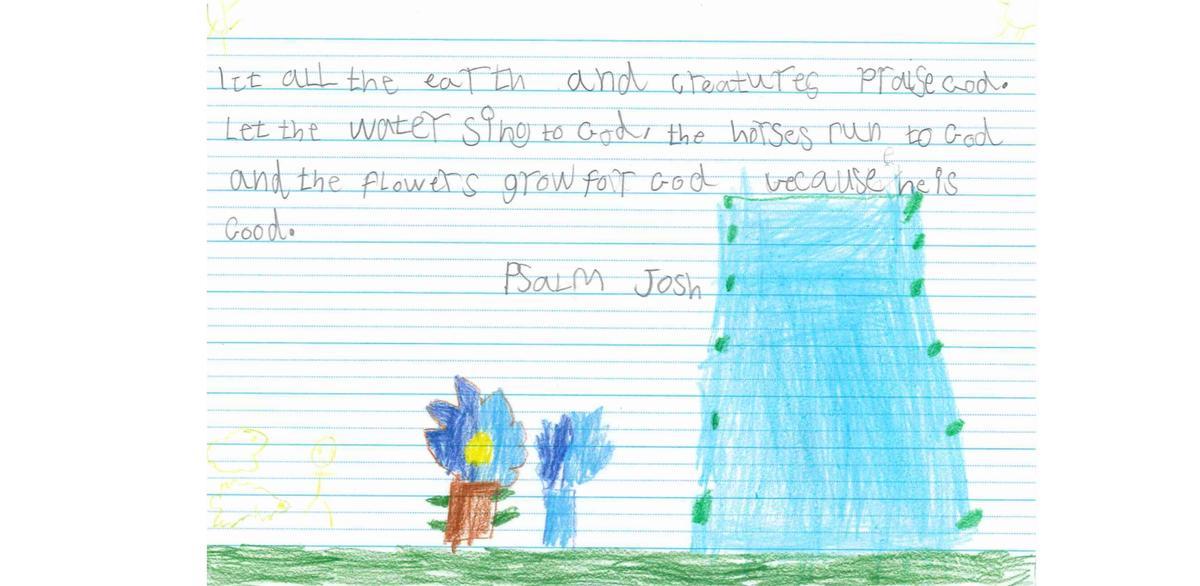 let all the earth and creatures praise God.
Let the water sing to God, the horses run to God
and the flowers grow for God because he is
Good.
Psalm Josh